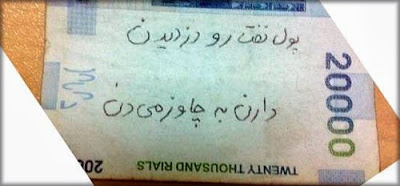 پول نفت رو دزدیدن
دارن به چاوز می دن
20000
TWENTY THOUSAND RIALS